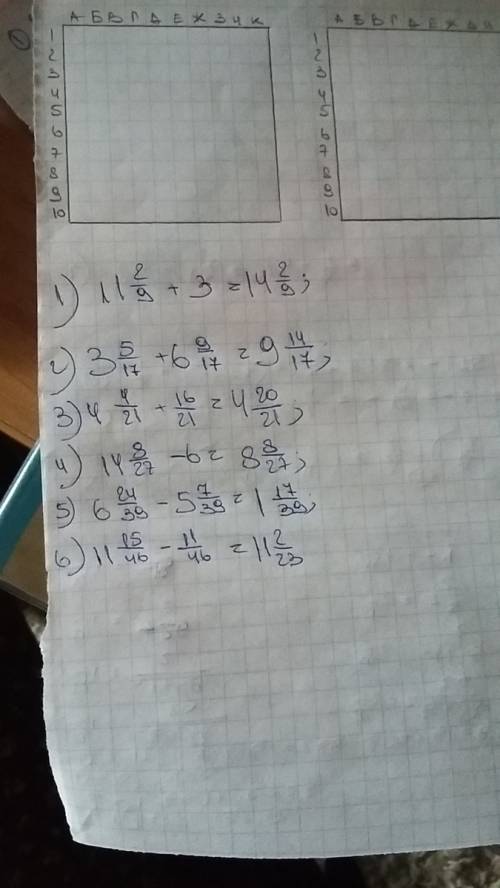 1
А Б В Г Д Е Ж З И К
1
2
3
4
5
6
7
8
9
10
А Б В Г Д Е Ж
1
2
3
4
5
6
7
8
9
10
1) 11 2/9 + 3 = 14 2/9;
2) 3 5/17 + 6 9/17 = 9 14/17;
3) 4 4/21 + 16/21 = 4 20/21;
4) 14 8/27 - 6 = 8 8/27;
5) 6 24/39 - 5 7/39 = 1 17/39;
6) 11 15/46 - 11/46 = 11 2/23